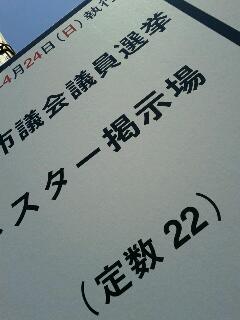 4月24日(日)執行
市議会議員選挙
スター掲示場
(定数 22)